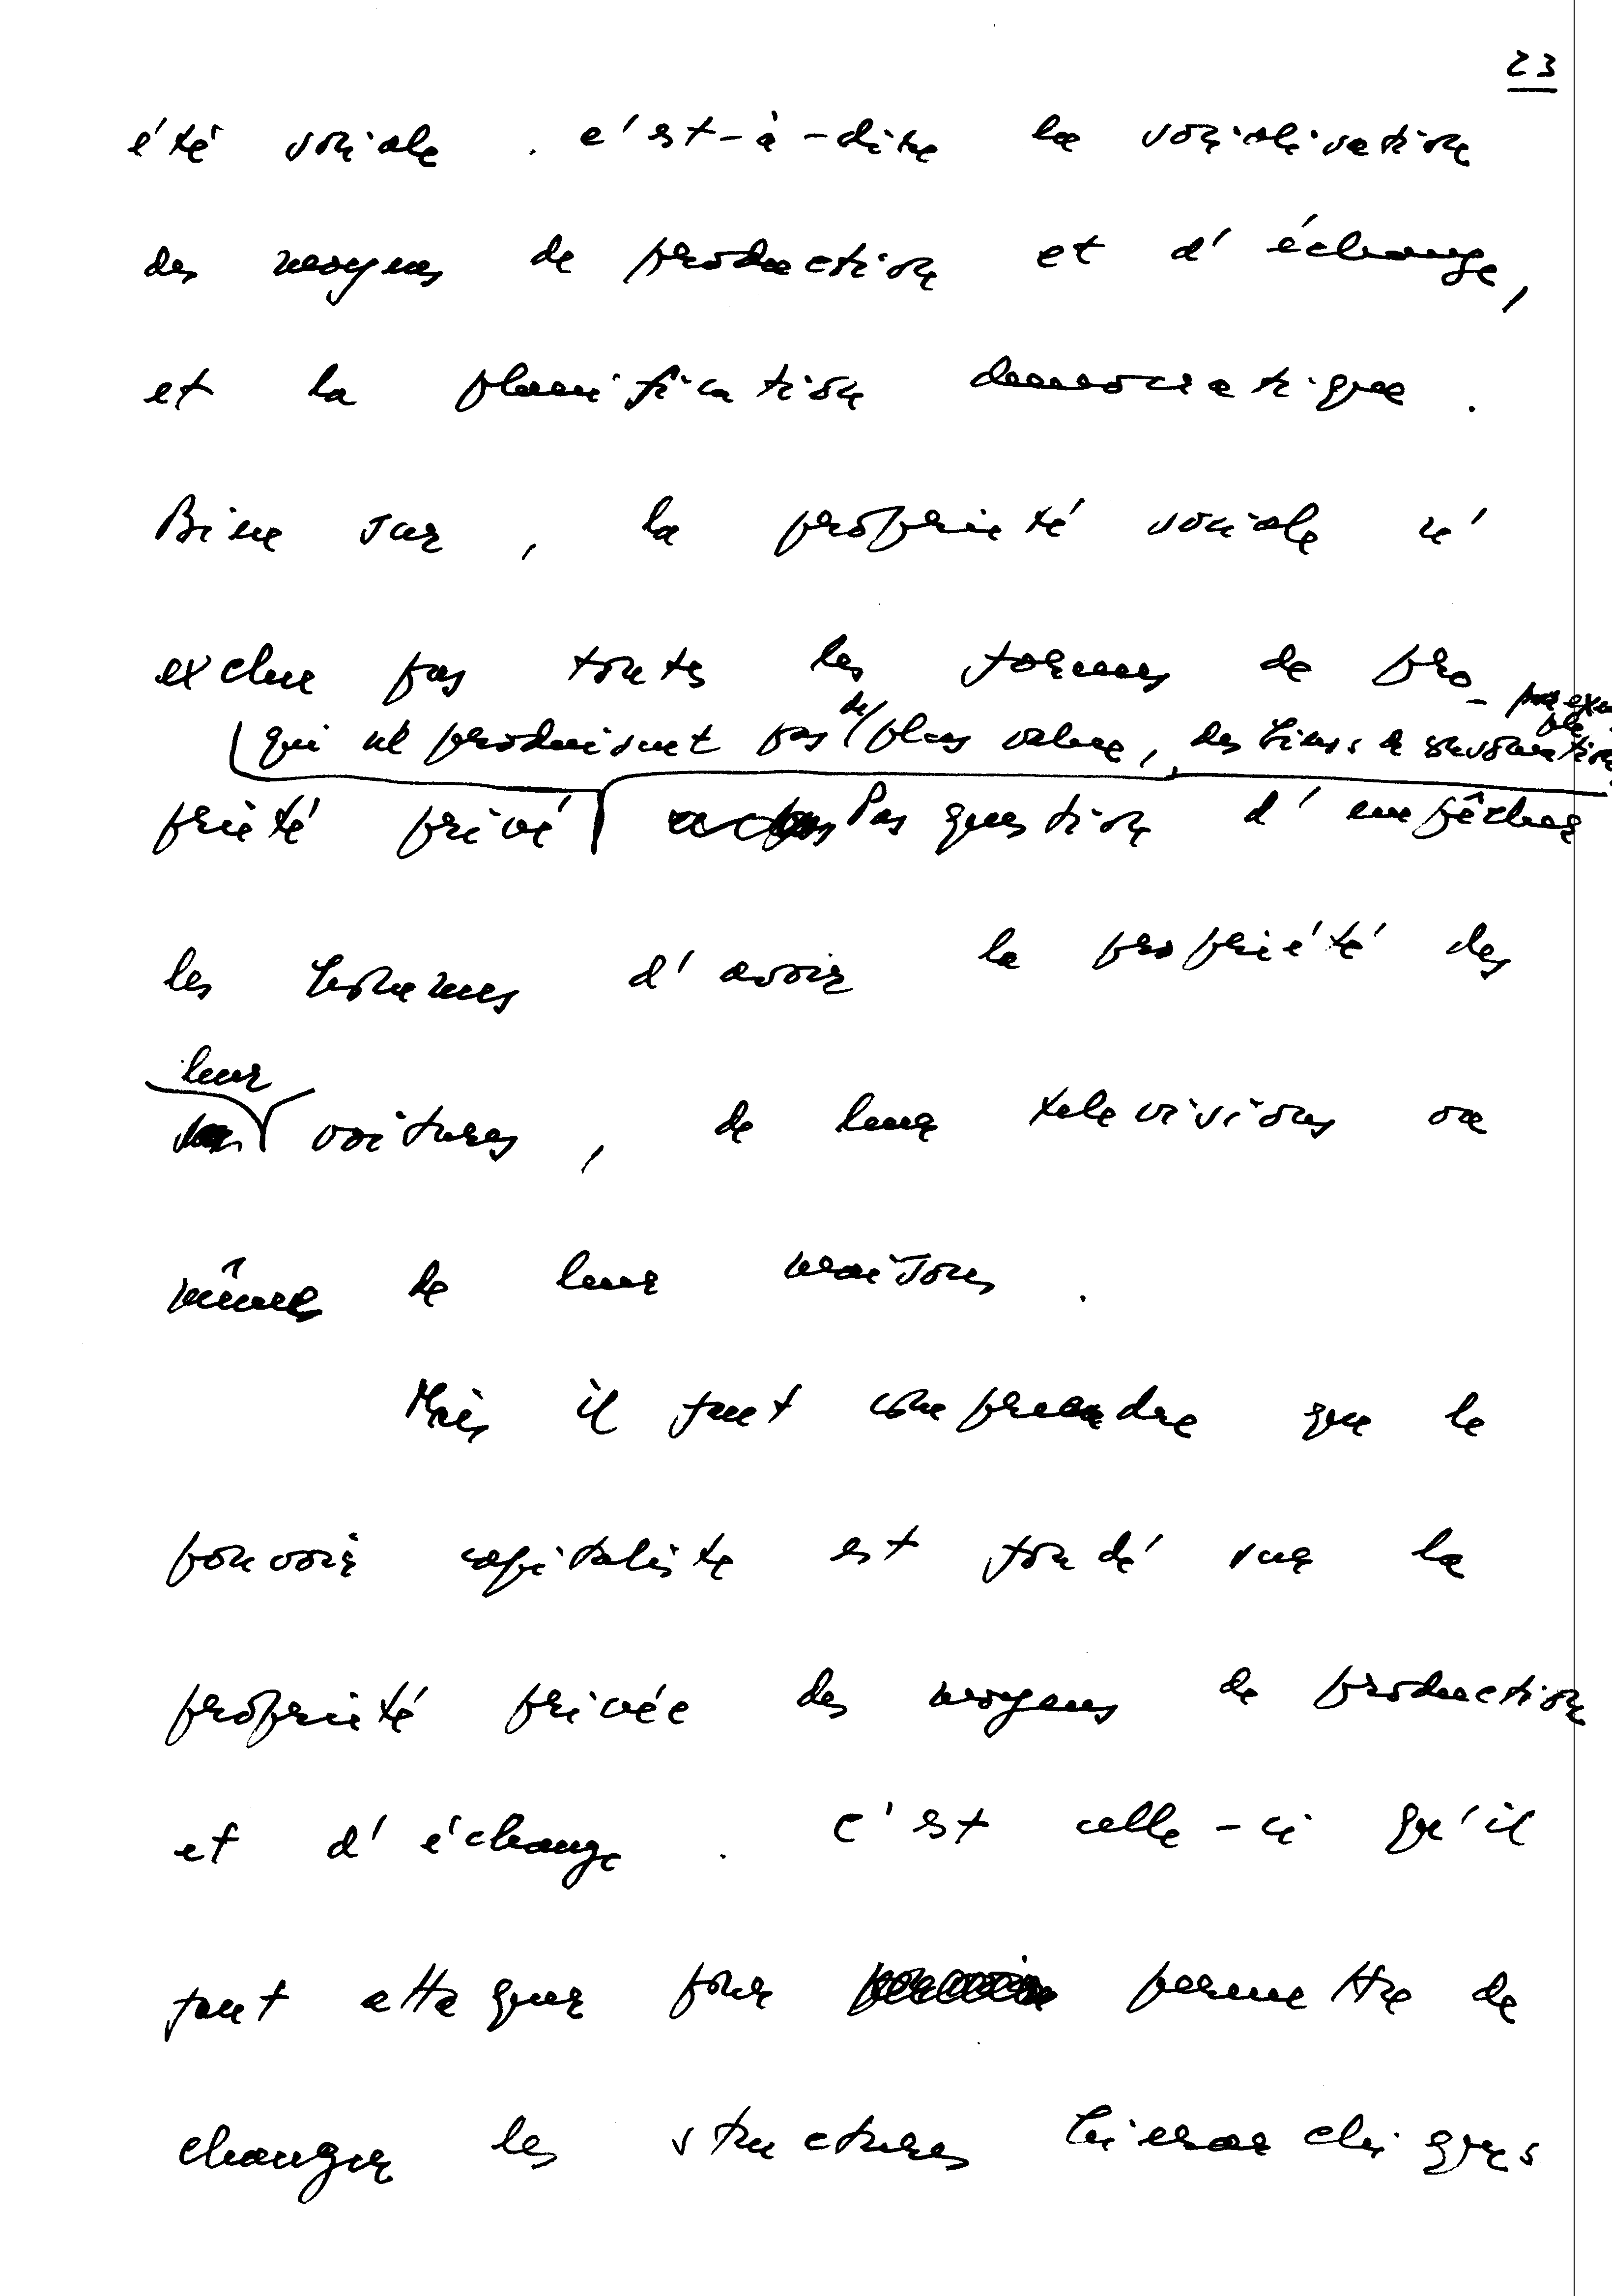 23
été sociale. c'est-à-dire la socialisation
des moyens de production et d'échange,
et la planification democratique.
Bien sur, la proprieté sociale n'
exclue pas toute les formes de pro-
qui ne produisent pas de plus value, par exemple des biens de consomation
prieté privé Pas question d'empêcher
les hommes d'avoir la propriété des
leur
voitures, de leur televisions ou
même de leur maisons.
Mais il faut comprendre que le
pouvoir capitaliste est fondé sur la
proprieté privée des moyens de production
et d'échange. C'est celle-ci qu'il
faut attaquer pour permettre de
changer les structures hierarchiques